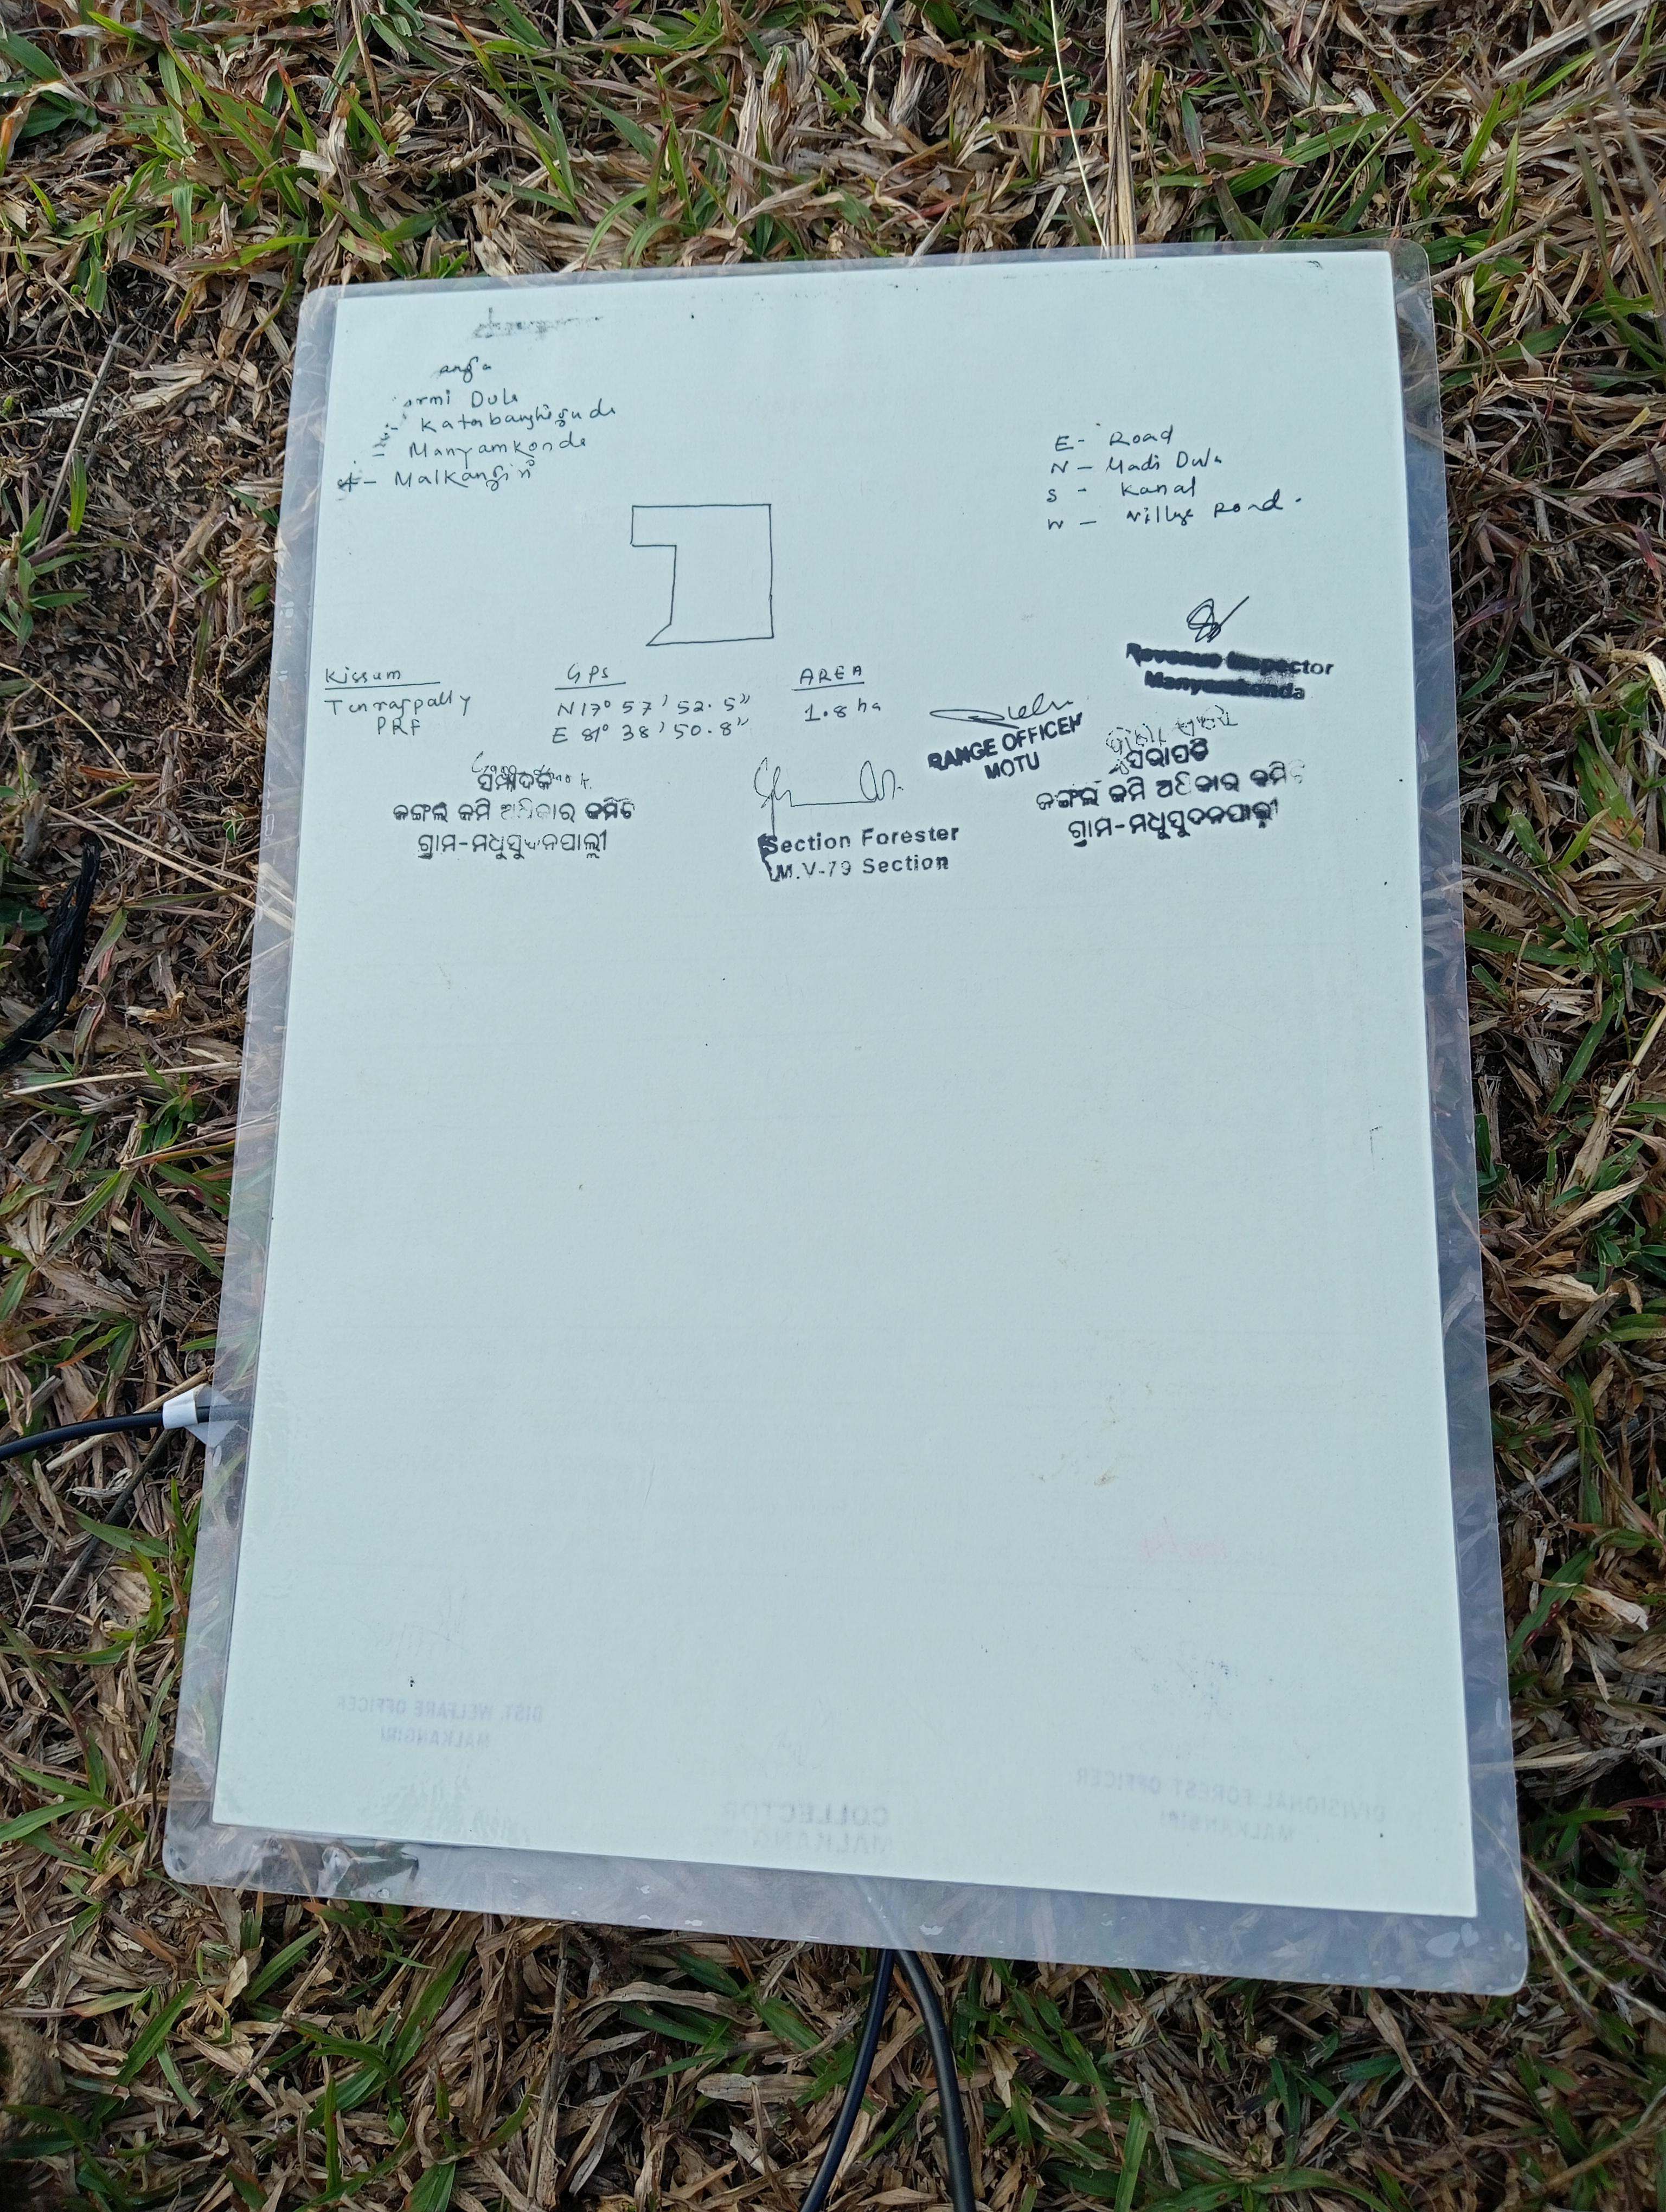 Dula
Manyamkonda
Malkangiri
E- Road
N - Madi Dula
S - Kanal
W - Village Road.
Kissum
GPS
AREA
PRF
N 17° 57' 52.5"
E 81° 38' 50.8"
1.8 ha
Revenue Inspector
Manyamkonda
RANGE OFFICER
MOTU
ସମ୍ପାଦକ
ଜଙ୍ଗଲ ଜମି ଅଧିକାର କମିଟି
ଗ୍ରାମ-ମଧୁସୁଦନପାଲ୍ଲୀ
Section Forester
M.V-79 Section
ସଭାପତି
ଜଙ୍ଗଲ ଜମି ଅଧିକାର କମିଟି
ଗ୍ରାମ-ମଧୁସୁଦନପାଲ୍ଲୀ
DIST. WELFARE OFFICER
MALKANGIRI
COLLECTOR
MALKANGIRI
DIVISIONAL FOREST OFFICER
MALKANGIRI